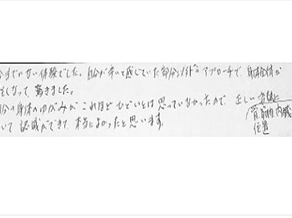 今までのない体験でした。自分が辛いと感じていた部分以外のアプローチで、身体全体が
くなって驚きました。
自分の身体のゆがみがこれほどひどいとは思っていなかったので、正しい
いて認識ができて本当によかったと思います。
位置